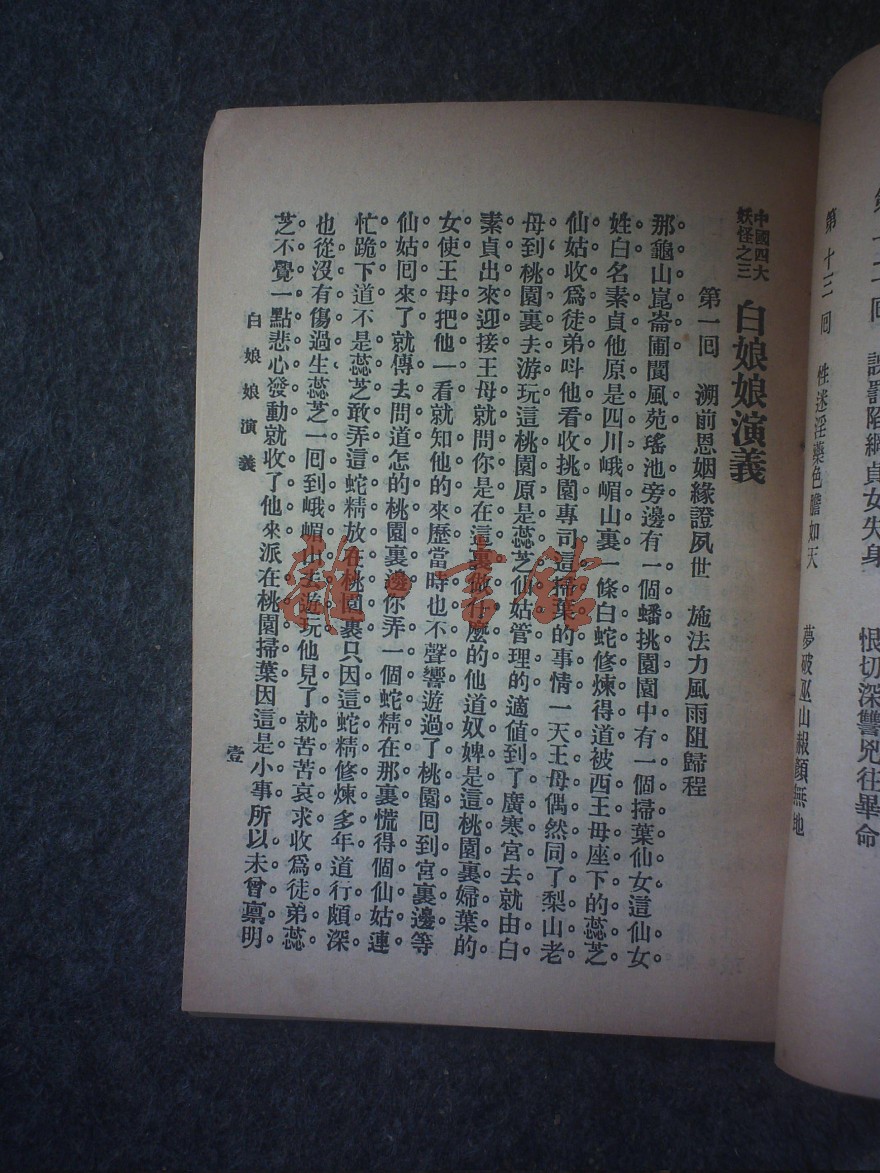 中國四大
妖怪之三
白娘娘演義
第一囘　溯前恩姻緣證夙世　施法力風雨阻歸程
那龜山崑崙圃閬風苑瑤池旁邊有一個蟠挑園園中有一個掃葉仙女這仙女
姓白名素貞他原是四川峨嵋山裏一條白蛇修煉得道被西王母座下的蕊芝
仙姑收爲徒弟呌他看收挑園專司這掃葉的事情一天王母偶然同了梨山老
母到桃園裏去游玩這桃園原是蕊芝仙姑管理的適値到了廣寒宮去就由白
素貞出來迎接王母就問你是在這裏做什麼的他道奴婢是這桃園裏婦葉的
女使王母把他一看就知他的來歷當時也不聲響遊過了桃園囘到宮裏邊等
仙姑囘來了就傳去問道怎的桃園裏邊你弄一個蛇精在那裏慌得個仙姑連
忙跪下道不是蕊芝敢弄這蛇精放在桃園裏只因這蛇精修煉多年道行頗深
也從沒有傷過生蕊芝一囘到峨嵋山去遊玩他見了就苦苦哀求收爲徒弟蕊
芝不覺一點悲心發動就收了他來派在桃園掃葉因這是小事所以未曾禀明
白娘娘演義
壹
第十三囘　性迷淫藥色膽如天　夢破巫山赧顏無地
囘　設羃陷網貞女失身　恨切深讐兇往畢命
書館